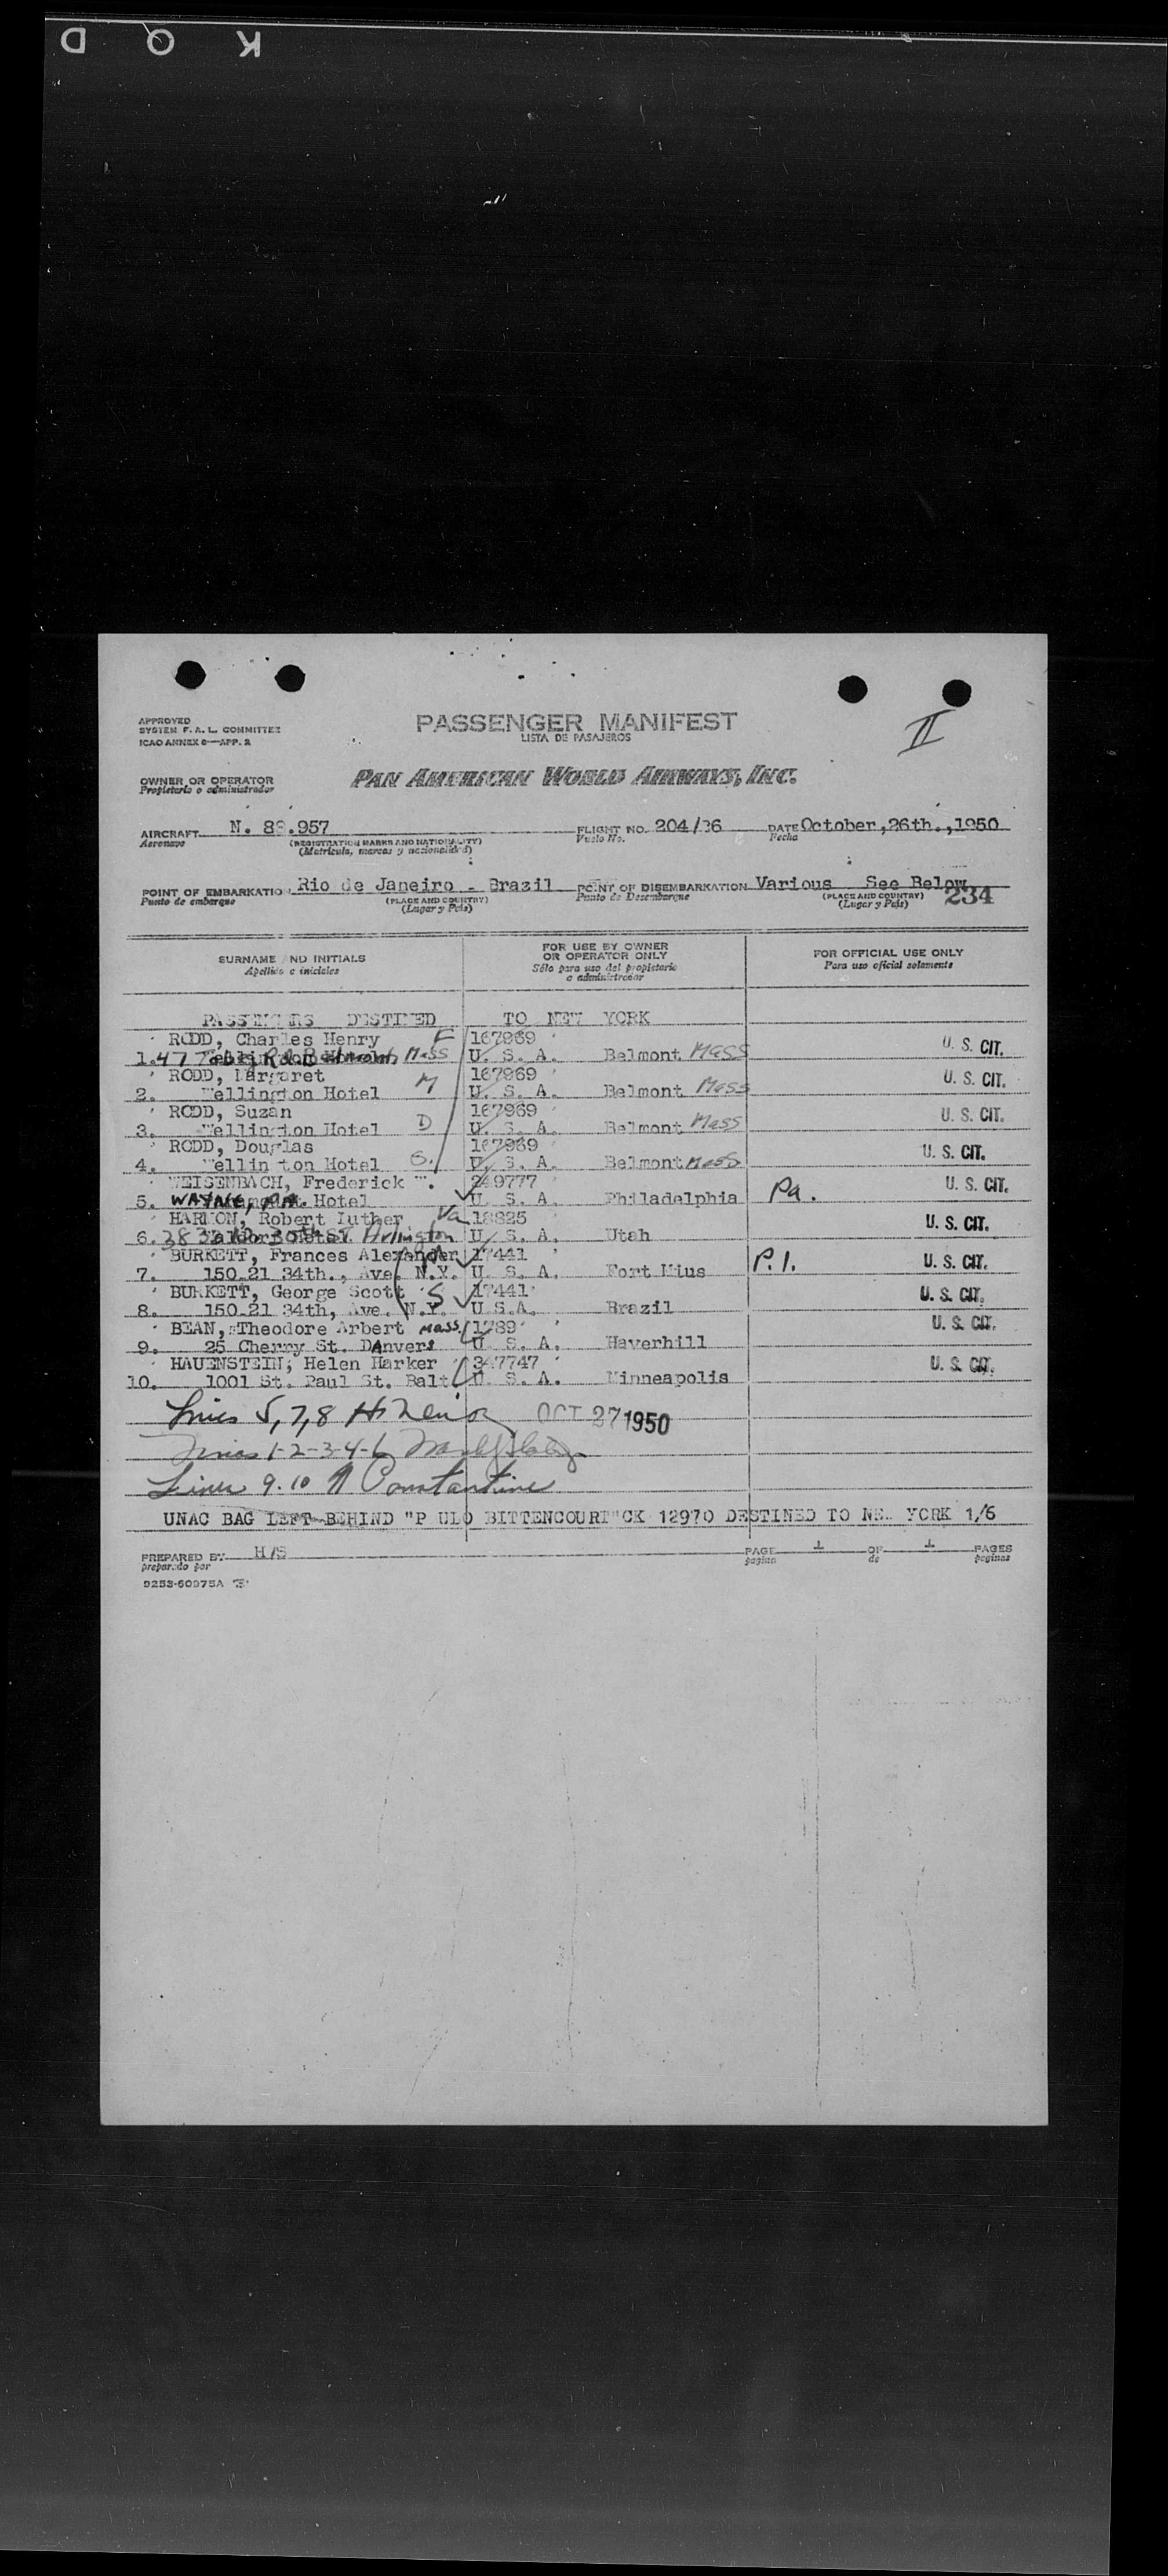 D O K
APPROVED
SYSTEM F. A. L. COMMITTEE
ICAO ANNEX 9—APP. 2
PASSENGER MANIFEST
LISTA DE PASAJEROS
II
OWNER OR OPERATOR
Propietario o administrador
PAN AMERICAN WORLD AIRWAYS, INC.
AIRCRAFT N. 88.957 FLIGHT NO. 204/26 DATE October,26th.,1950
Aeronave (REGISTRATION MARKS AND NATIONALITY) Vuelo No. Fecha
(Matrícula, marcas y nacionalidad)
POINT OF EMBARKATION Rio de Janeiro - Brazil POINT OF DISEMBARKATION Various See Below
Punto de embarque (PLACE AND COUNTRY) Punto de Desembarque (PLACE AND COUNTRY) 234
(Lugar y País) (Lugar y País)
SURNAME AND INITIALS FOR USE BY OWNER OR OPERATOR ONLY FOR OFFICIAL USE ONLY
Apellido e iniciales Sólo para uso del propietario o administrador Para uso oficial solamente
PASSENGERS DESTINED TO NEW YORK
RODD, Charles Henry F 167969
1. 47 Belmont Mass U. S. A. Belmont Mass U. S. CIT.
RODD, Margaret M 167969
2. Wellington Hotel U. S. A. Belmont Mass U. S. CIT.
RODD, Suzan D 167969
3. Wellington Hotel U. S. A. Belmont Mass U. S. CIT.
RODD, Douglas 167969
4. Wellington Hotel S. U. S. A. Belmont Mass U. S. CIT.
WEISENBACH, Frederick W. 249777
5. WAYNE, PA. Hotel U. S. A. Philadelphia Pa. U. S. CIT.
HARMON, Robert Luther Va 18825
6. 30th ST Arlington U. S. A. Utah U. S. CIT.
BURKETT, Frances Alexander 17441
7. 150.21 34th., Ave. N.Y. U. S. A. Fort Mius P.I. U. S. CIT.
BURKETT, George Scott S 17441
8. 150.21 34th, Ave. N.Y. U.S.A. Brazil U. S. CIT.
BEAN, Theodore Arbert Mass. 1789
9. 25 Cherry St. Danvers U. S. A. Haverhill U. S. CIT.
HAUENSTEIN, Helen Harker 347747
10. 1001 St. Paul St. Balt U. S. A. Minneapolis U. S. CIT.
Lines 5,7,8 OCT 27 1950
Lines 1-2-3-4-6
Lines 9.10 Constantine
UNAC BAG LEFT BEHIND "P ULO BITTENCOURT"CK 12970 DESTINED TO NEW YORK 1/6
PREPARED BY H/S PAGE 1 OF 1 PAGES
preparado por pagina de paginas
9253-60975A